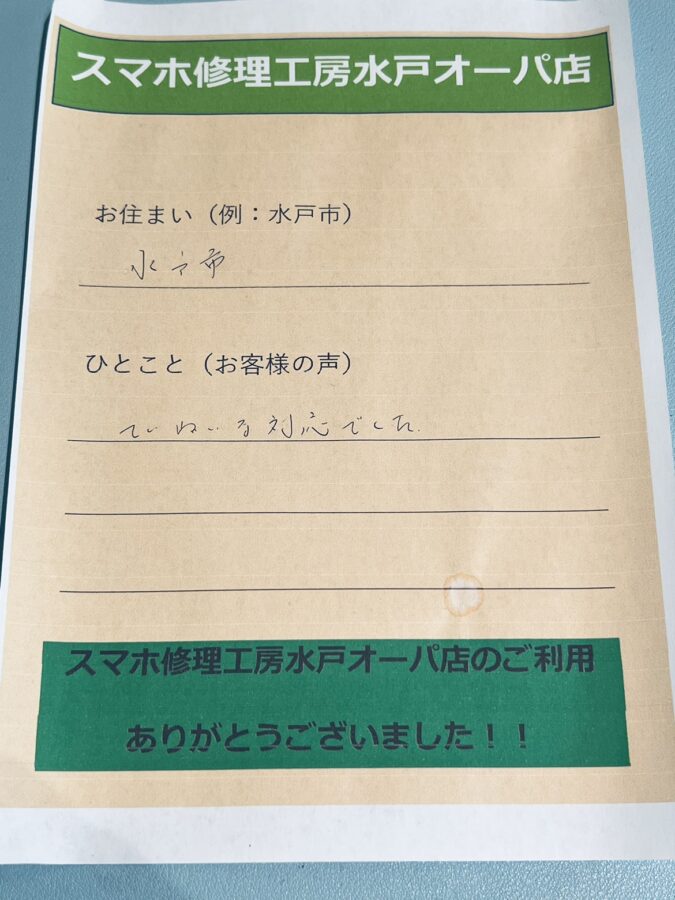 スマホ修理工房水戸オーパ店
お住まい（例：水戸市）
水戸市
ひとこと（お客様の声）
ていねいな対応でした.
スマホ修理工房水戸オーパ店のご利用
ありがとうございました！！